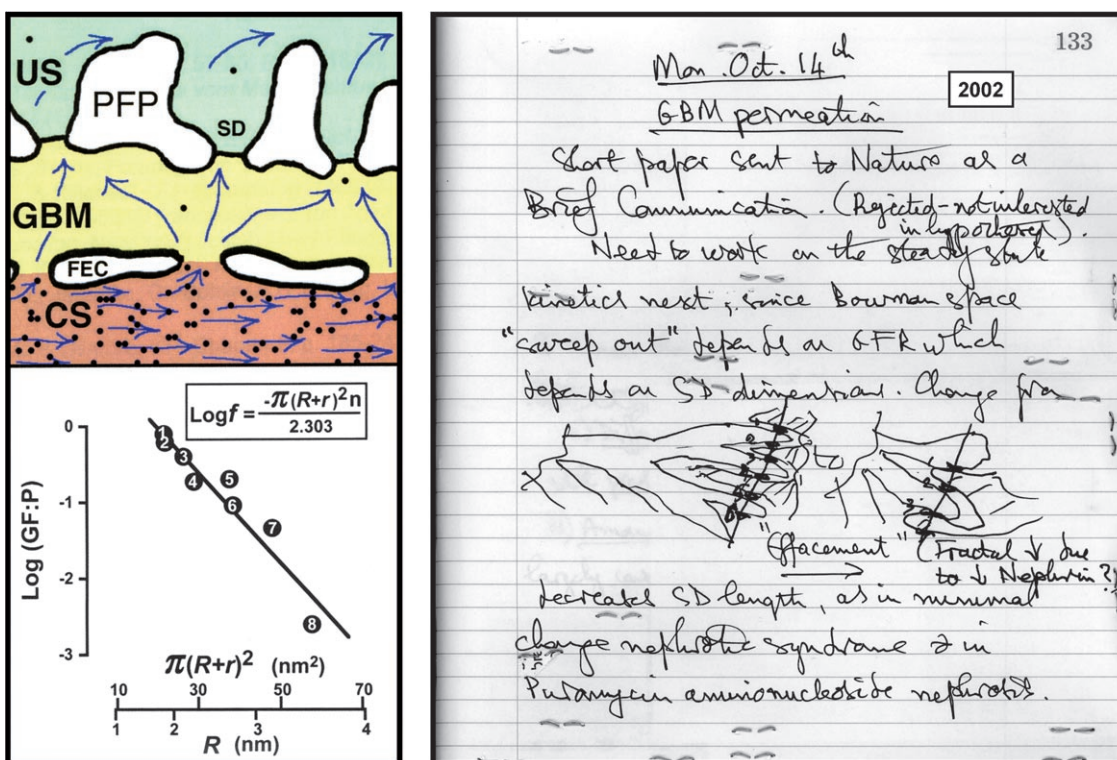 US
PFP
SD
GBM
FEC
CS
Logf = -π(R+r)²n / 2.303
Log (GF:P)
0
-1
-2
-3
1
2
3
4
5
6
7
8
π(R+r)² (nm²)
10 30 50 70
1 2 3 4
R (nm)
133
Mon. Oct. 14th
2002
GBM permeation
Short paper sent to Nature as a
Brief Communication. (Rejected - not interested
in hypotheses).
Need to work on the steady state
kinetics next, since Bowman space
"sweep out" depends on GFR which
depends on SD dimensions. Change from
to
"Effacement" (Fractal ↓ due
to ↓ Nephrin?)
decreases SD length, as in minimal
change nephrotic syndrome & in
Puromycin aminonucleoside nephrosis.